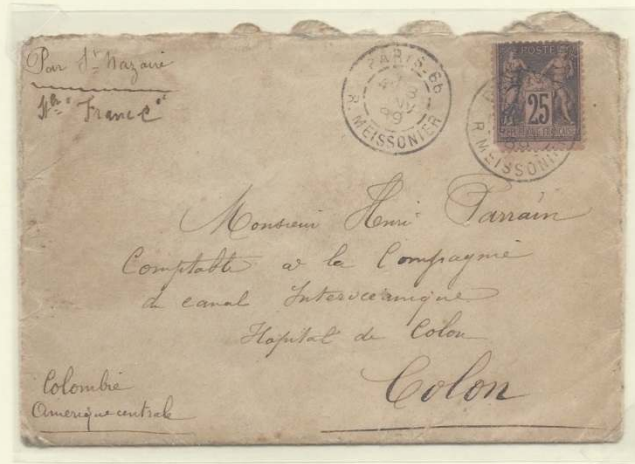 Par St Nazaire
Str "France"
PARIS 66
8
R. MEISSONIER
POSTES
25
R. MEISSONIER
Monsieur Henri Parrain
Comptable à la Compagnie
de canal Interocéanique
Hopital de Colon
Colon
Colombie
Amerique centrale